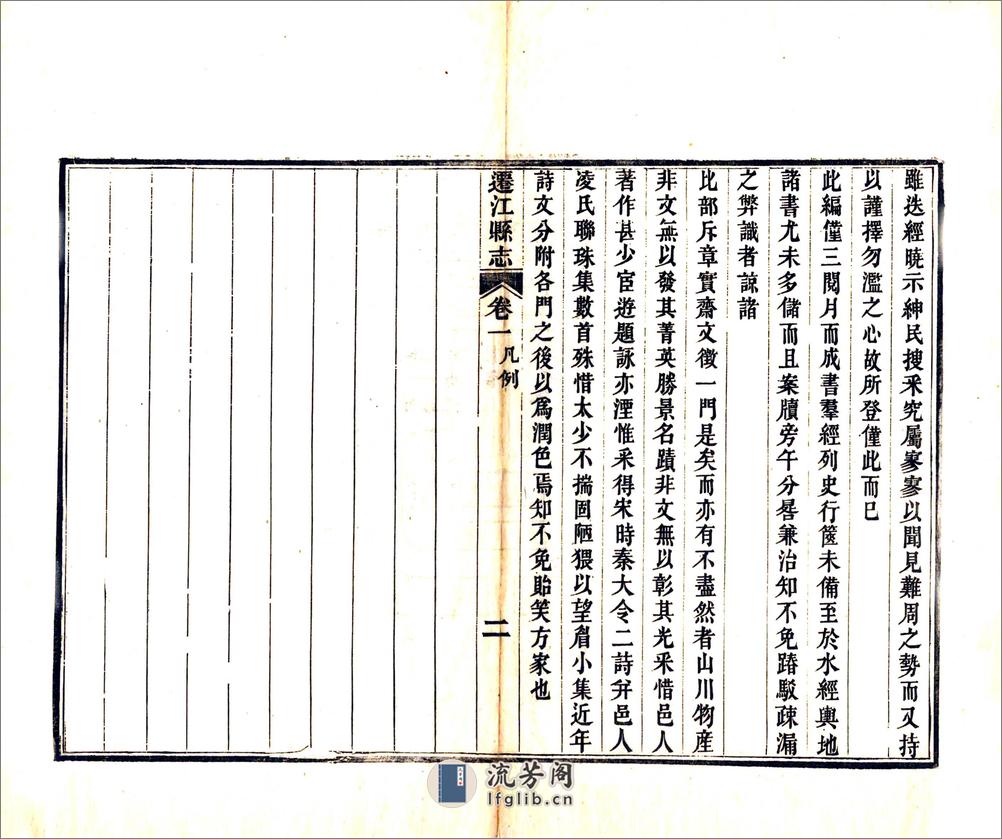 雖迭經曉示紳民搜采究屬寥寥以聞見難周之勢而又持
以謹擇勿濫之心故所登僅此而已
此編僅三閱月而成書羣經列史行篋未備至於水經輿地
諸書尤未多儲而且案牘旁午分晷兼治知不免踳駁疎漏
之弊識者諒諸
比部斥章實齋文徵一門是矣而亦有不盡然者山川物產
非文無以發其菁英勝景名蹟非文無以彰其光采惜邑人
著作甚少宦遊題詠亦湮惟采得宋時秦大令二詩弁邑人
凌氏聯珠集數首殊惜太少不揣固陋猥以望眉小集近年
詩文分附各門之後以爲潤色焉知不免貽笑方家也
遷江縣志 卷一 凡例 二
流芳阁
lfglib.cn